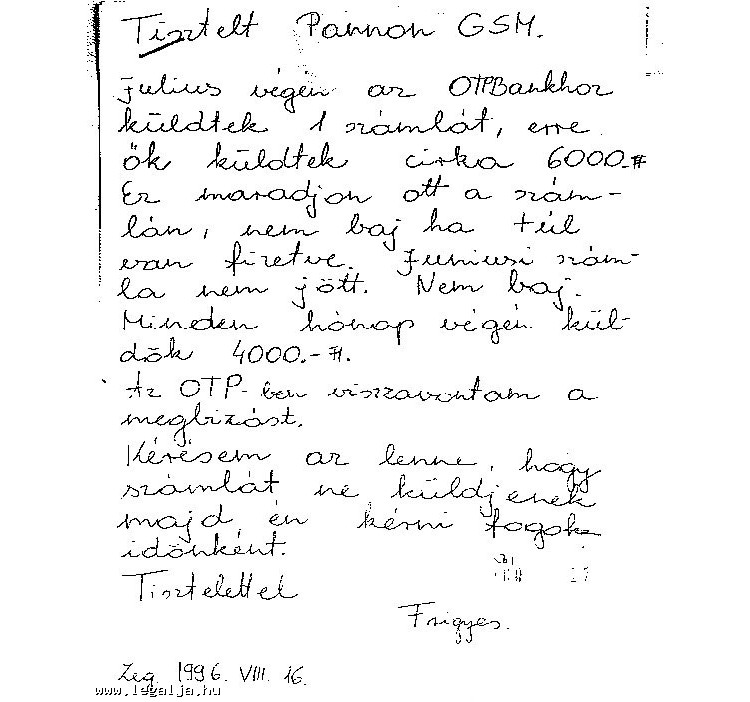 Tisztelt Pannon GSM.
Julius végén az OTPBankhoz
küldtek 1 számlát, erre
ők küldtek cirka 6000.-Ft
Ez maradjon ott a szám-
lán, nem baj ha túl
van fizetve. Juniusi szám-
la nem jött. Nem baj.
Minden hónap végén kül-
dök 4000.-Ft.
Az OTP-ben visszavontam a
megbizást.
Kérésem az lenne, hogy
számlát ne küldjenek
majd én kérni fogok
idönként.
Tisztelettel
Frigyes.
Zeg. 1996. VIII. 16.
www.legalja.hu